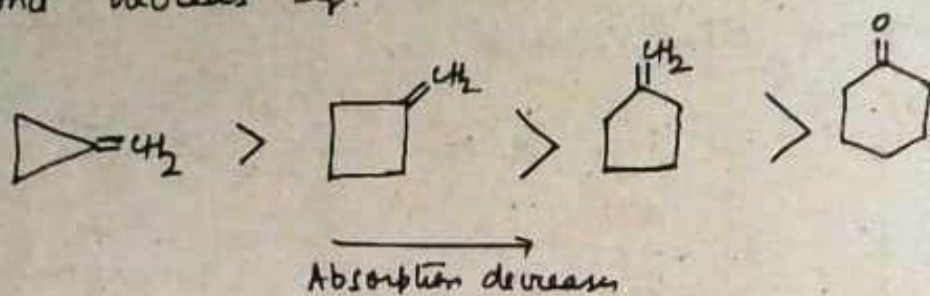 CH2
CH2
CH2
O
> > >
Absorption decreases